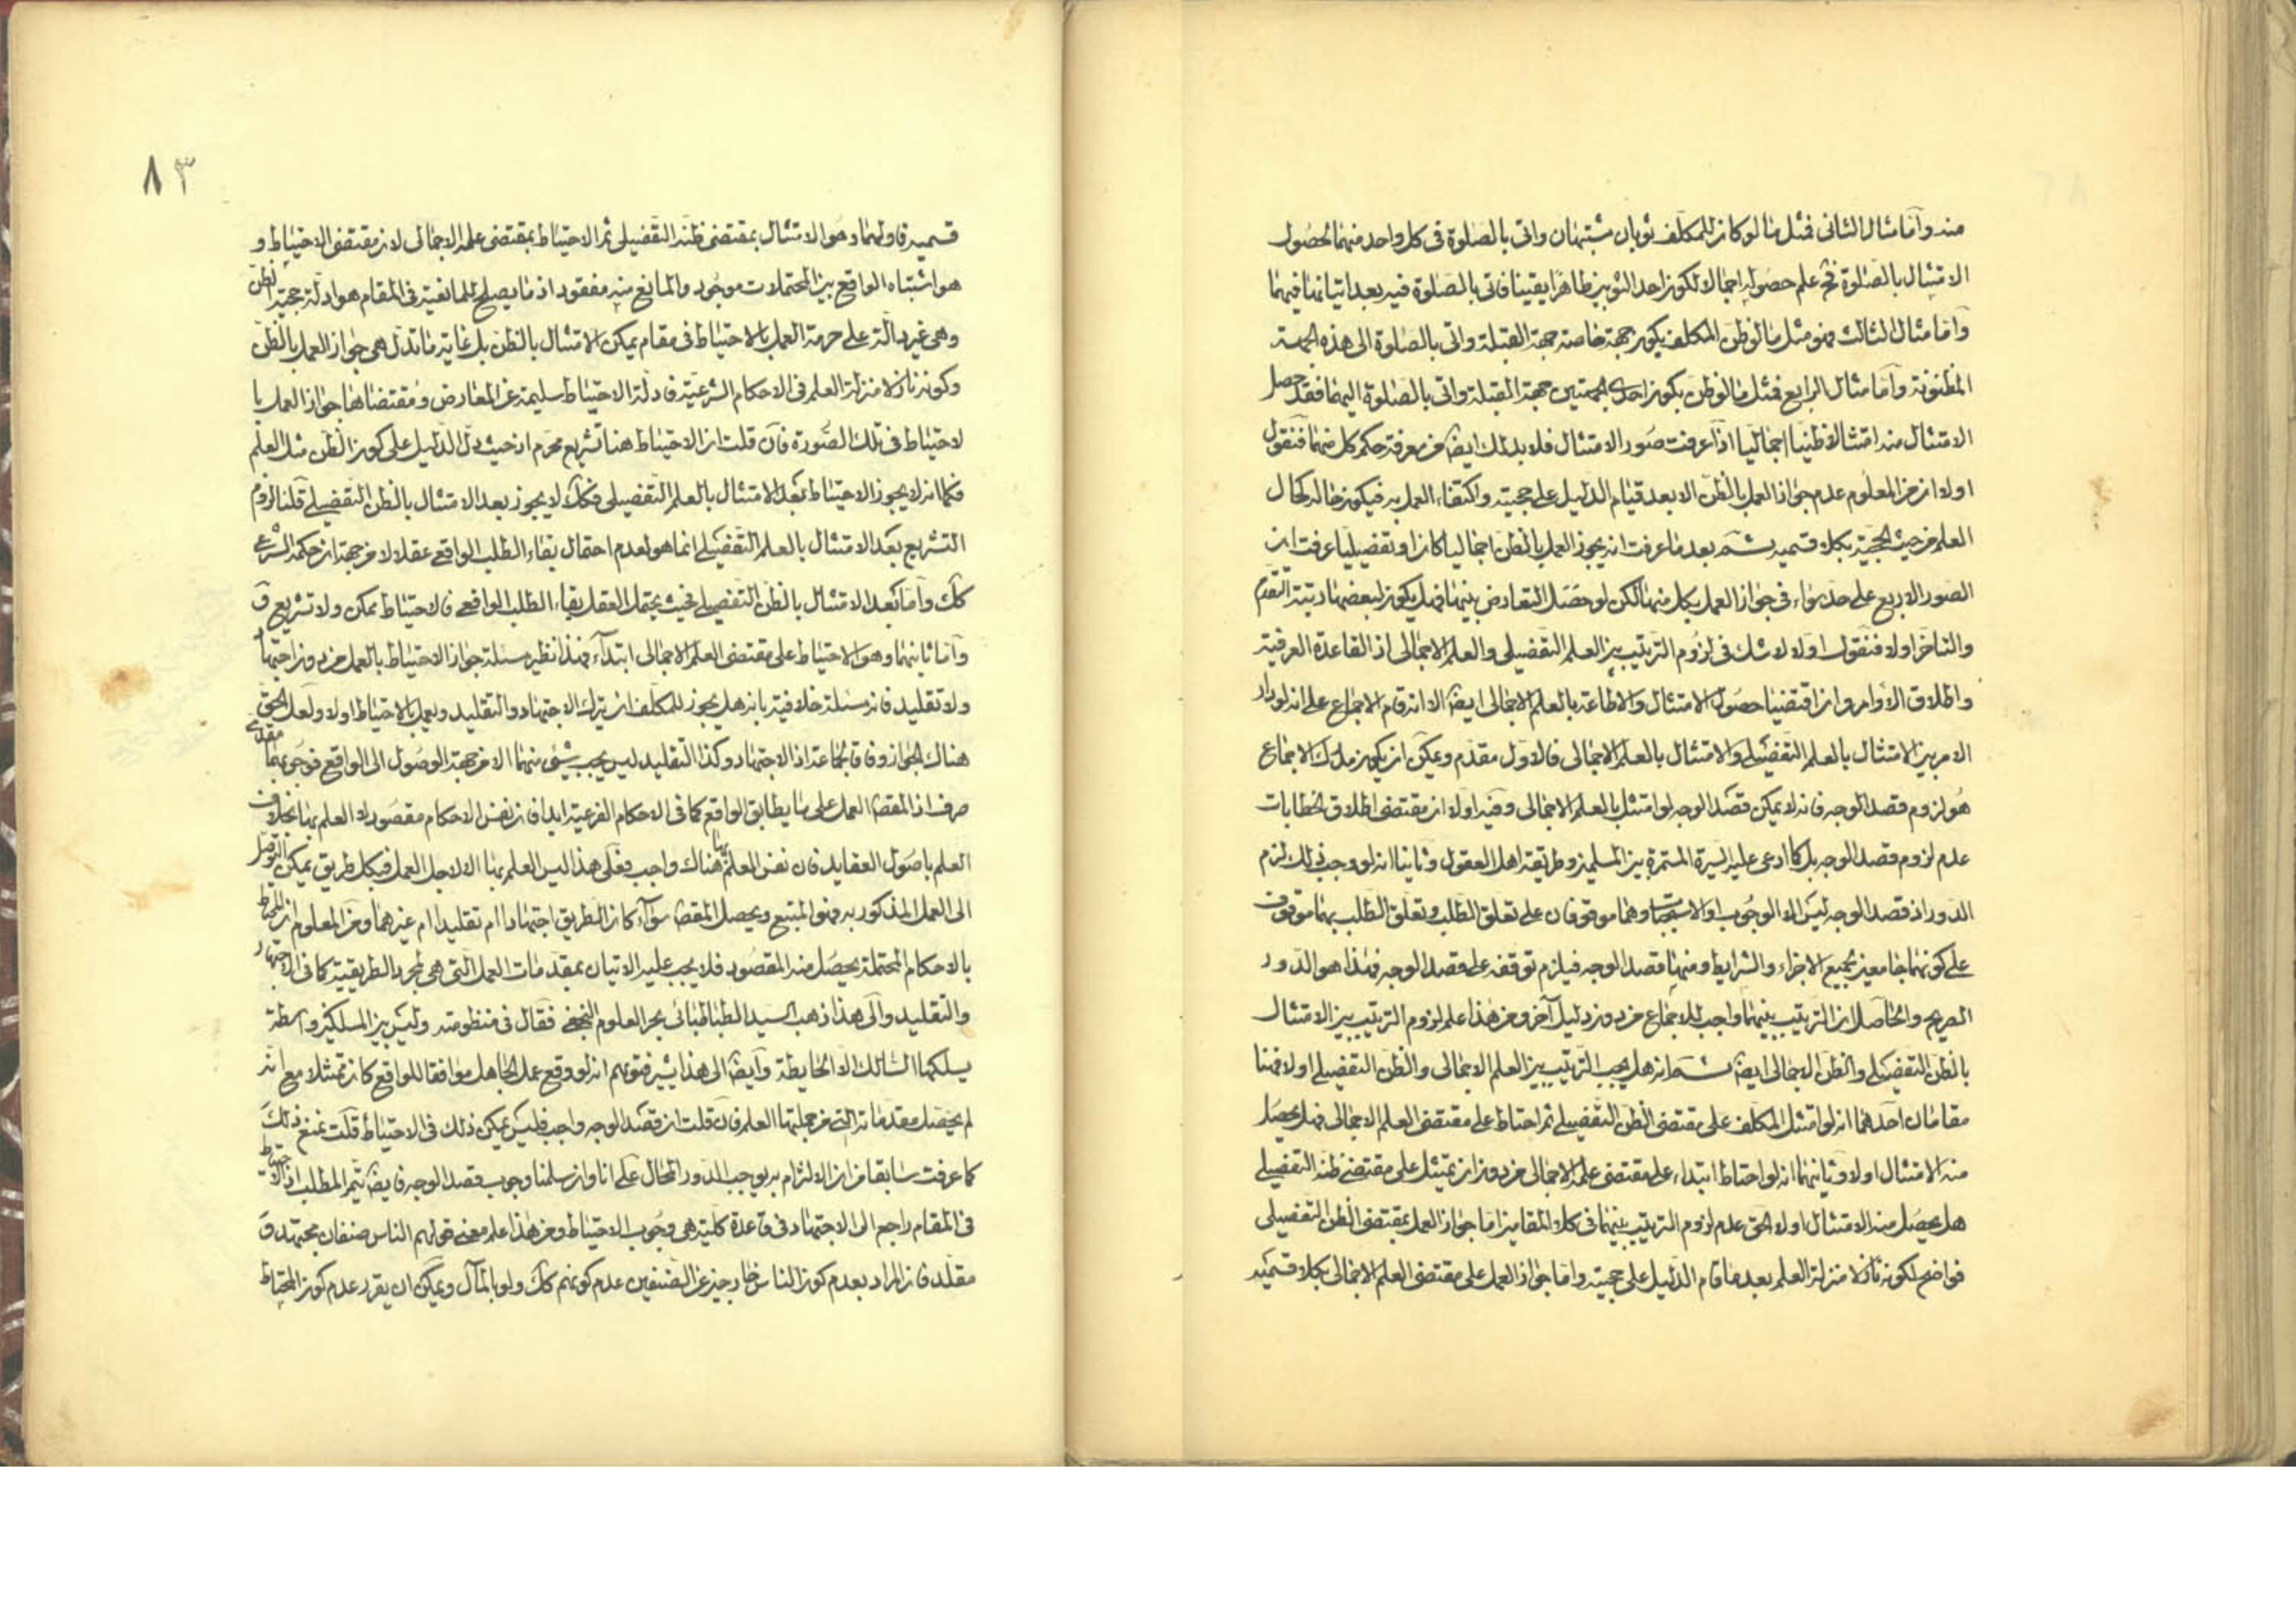 منه وأما مثال الثانى فمثل ما لو كان للمكلف ثوبان مشتبهان واتى بالصلوة فى كل واحد منهما لحصول
الامتثال بالصلوة فح علم حصوله اجمالا لكون احد الثوبين طاهرا يقينا فاتى بالصلوة فيه بعد اتيانها فيهما
وأما مثال الثالث فهو مثل ما لو ظن المكلف بكون جهة خاصة جهة القبلة واتى بالصلوة الى هذه الجهة
المظنونة وأما مثال الرابع فمثل ما لو ظن بكون احدى الجهتين جهة القبلة واتى بالصلوة اليهما فقد حصل
الامتثال منه امتثالا ظنيا اجماليا اذا عرفت صور الامتثال فلابد لك ايضا من معرفة حكم كل منهما فنقول
اولا ان من المعلوم عدم جواز العمل بالظن الا بعد قيام الدليل على حجيته واكتفاء العمل به فيكون حاله كحال
العلم من حيث الحجية بكلا قسميه ثم بعد ما عرفت انه يجوز العمل بالظن اجماليا كان او تفصيليا عرفت ان
الصور الاربع على حد سواء فى جواز العمل بكل منها لكن لو حصل التعارض بينها فهل يكون لبعضها رتبة التقدم
والتاخر اولا فنقول اولا لا شك فى لزوم الترتيب بين العلم التفصيلى والعلم الاجمالى اذ القاعدة العرفية
واطلاق الأوامر وان اقتضيا حصول الامتثال والاطاعة بالعلم الاجمالى ايضا الا انه قام الاجماع على انه لو دار
الامر بين الامتثال بالعلم التفصيلى والامتثال بالعلم الاجمالى فالاول مقدم ويمكن ان يكون مدرك الاجماع
هو لزوم قصد الوجه فانه لا يمكن قصد الوجه لو امتثل بالعلم الاجمالى وفيه اولا ان مقتضى اطلاق الخطابات
عدم لزوم قصد الوجه بل كما ادعى عليه السيرة المستمرة بين المسلمين وطريقة اهل العقول وثانيا انه لو وجب ذلك لزم
الدور اذ قصد الوجه ليس الا الوجوب او الاستحباب وهما موقوفان على تعلق الطلب وتعلق الطلب بهما موقوف
على كونهما جامعين لجميع الاجزاء والشرايط ومنها قصد الوجه فيلزم توقفه على قصد الوجه فهذا هو الدور
الصريح والحاصل ان الترتيب بينهما واجب للاجماع من دون دليل آخر ومن هذا علم لزوم الترتيب بين الامتثال
بالظن التفصيلى والظن الاجمالى ايضا ثم انه هل يجب الترتيب بين العلم الاجمالى والظن التفصيلى اولا فهنا
مقامان احدهما انه لو امتثل المكلف على مقتضى الظن التفصيلى ثم احتاط على مقتضى العلم الاجمالى فهل يحصل
منه الامتثال اولا وثانيهما انه لو احتاط ابتداء على مقتضى علمه الاجمالى من دون ان يمتثل على مقتضى ظنه التفصيلى
هل يحصل منه الامتثال اولا الحق عدم لزوم الترتيب بينهما فى كلا المقامين اما جواز العمل بمقتضى الظن التفصيلى
فواضح لكونه نازلا منزلة العلم بعد ما قام الدليل على حجيته واما جواز العمل على مقتضى العلم الاجمالى بكلا قسميه
٨٣
قسميه فاولهما وهو الامتثال بمقتضى ظنه التفصيلى ثم الاحتياط بمقتضى علمه الاجمالى لان مقتضى الاحتياط و
هو اشتباه الواقع بين المحتملات موجود والمانع منه مفقود اذ ما يصلح للمانعية فى المقام هو ادلة حجية الظن
وهى غير دالة على حرمة العمل بالاحتياط فى مقام يمكن الامتثال بالظن بل غاية ما تدل هى جواز العمل بالظن
وكونه نازلا منزلة العلم فى الاحكام الشرعية فادلة الاحتياط سليمة عن المعارض ومقتضاها جواز العمل با
لاحتياط فى تلك الصورة فان قلت ان الاحتياط هنا تشريع محرم اذ حيث دل الدليل على كون الظن مثل العلم
فكما انه لا يجوز الاحتياط بعد الامتثال بالعلم التفصيلى فكك لا يجوز بعد الامتثال بالظن التفصيلى قلنا لزوم
التشريع بعد الامتثال بالعلم التفصيلى انما هو لعدم احتمال بقاء الطلب الواقعى عقلا لا من جهة ان حكمه الشرعى
كك وأما بعد الامتثال بالظن التفصيلى فحيث يحتمل العقل بقاء الطلب الواقعى فالاحتياط ممكن ولا تشريع ق
وأما ثانيهما وهو الاحتياط على مقتضى العلم الاجمالى ابتداء فهذا نظير مسئلة جواز الاحتياط بالعمل من دون اجتهاد
ولا تقليد فانه مسئلة خلافية بانه هل يجوز للمكلف ان يترك الاجتهاد والتقليد ويعمل بالاحتياط اولا ولعل الحق
هناك الجواز وفاقا لجماعة اذ الاجتهاد وكذا التقليد ليس يجب شىء منهما الا من جهة الوصول الى الواقع فوجوبهما مقدمى
صرف اذ المقصد العمل على ما يطابق الواقع كما فى الاحكام الفرعية فان نفس الاحكام مقصود لا العلم بها بخلاف
العلم باصول العقايد فان نفس العلم بها هناك واجب فعلى هذا ليس العلم بها الا لاجل العمل فبكل طريق يمكن التوصل
الى العمل المذكور به فهو المتبع ويحصل المقصد سواء كان الطريق اجتهادا ام تقليدا ام غيرهما ومن المعلوم ان المحتاط
بالاحكام المحتملة يحصل منه المقصود فلا يجب عليه الاتيان بمقدمات العمل التى هى لمجرد الطريقية كما فى الاجتهاد
والتقليد والى هذا ذهب السيد الطباطبائى بحر العلوم النجفى فقال فى منظومته وليس بين المسلكين واسطة
يسلكها السالك الا الحايطة وأيضا الى هذا يشير فتويهم انه لو وقع عمل الجاهل موافقا للواقع كان ممتثلا مع انه
لم يحصل مقدماته التى من جملتها العلم فان قلت ان قصد الوجه واجب فليس يمكن ذلك فى الاحتياط قلت نمنع ذلك
كما عرفت سابقا من ان الالتزام به يوجب الدور المحال على انا وان سلمنا وجوب قصد الوجه فايضا يتم المطلب اذ الاحتياط
فى المقام راجع الى الاجتهاد فى قاعدة كلية هى وجوب الاحتياط ومن هذا علم معنى قولهم الناس صنفان مجتهد و
مقلد فان المراد بعدم كون الناس خارجين عن الصنفين عدم كونهم كك ولو بالمآل ويمكن ان يقرر عدم كون المحتاط